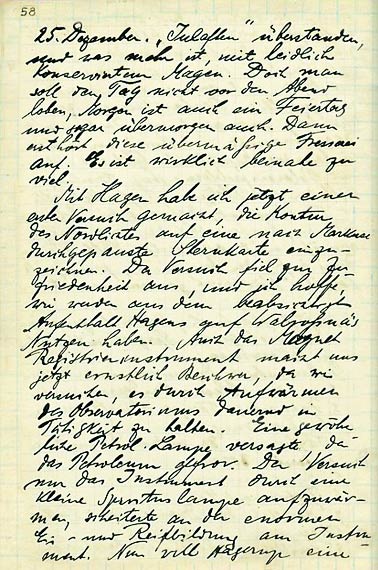 58
25. Dezember. „Juleaften" überstanden,
und was mehr ist, mit leidlich
konserviertem Magen. Doch man
soll den Tag nicht vor dem Abend
loben, Morgen ist auch ein Feiertag
und sogar übermorgen auch. Dann
erst hört diese übermäßige Fresserei
auf. Es ist wirklich beinahe zu
viel.
Mit Hagen habe ich jetzt einen
ersten Versuch gemacht, die Kontur
des Nordlichtes auf eine nach
durchgepauste Sternkarte einzu-
zeichnen. Der Versuch fiel zur Zu-
friedenheit aus, und ich hoffe,
wir werden aus dem beabsichtigten
Aufenthalt Hagens auf Walrosnäs
Nutzen haben. Auch das Magnet
Registrierinstrument macht uns
jetzt ernstlich Beschwer, da wir
versuchen, es durch Aufwärmen
des Observatoriums dauernd in
Tätigkeit zu halten. Eine gewöhn-
liche Petrol. Lampe versagte, da
das Petroleum gefror. Der Versuch
nur das Instrument durch eine
kleine Spirituslampe aufzuwär-
men, scheiterte an der enormen
Eis- und Reifbildung am Instru-
ment. Nun will Hagerup eine